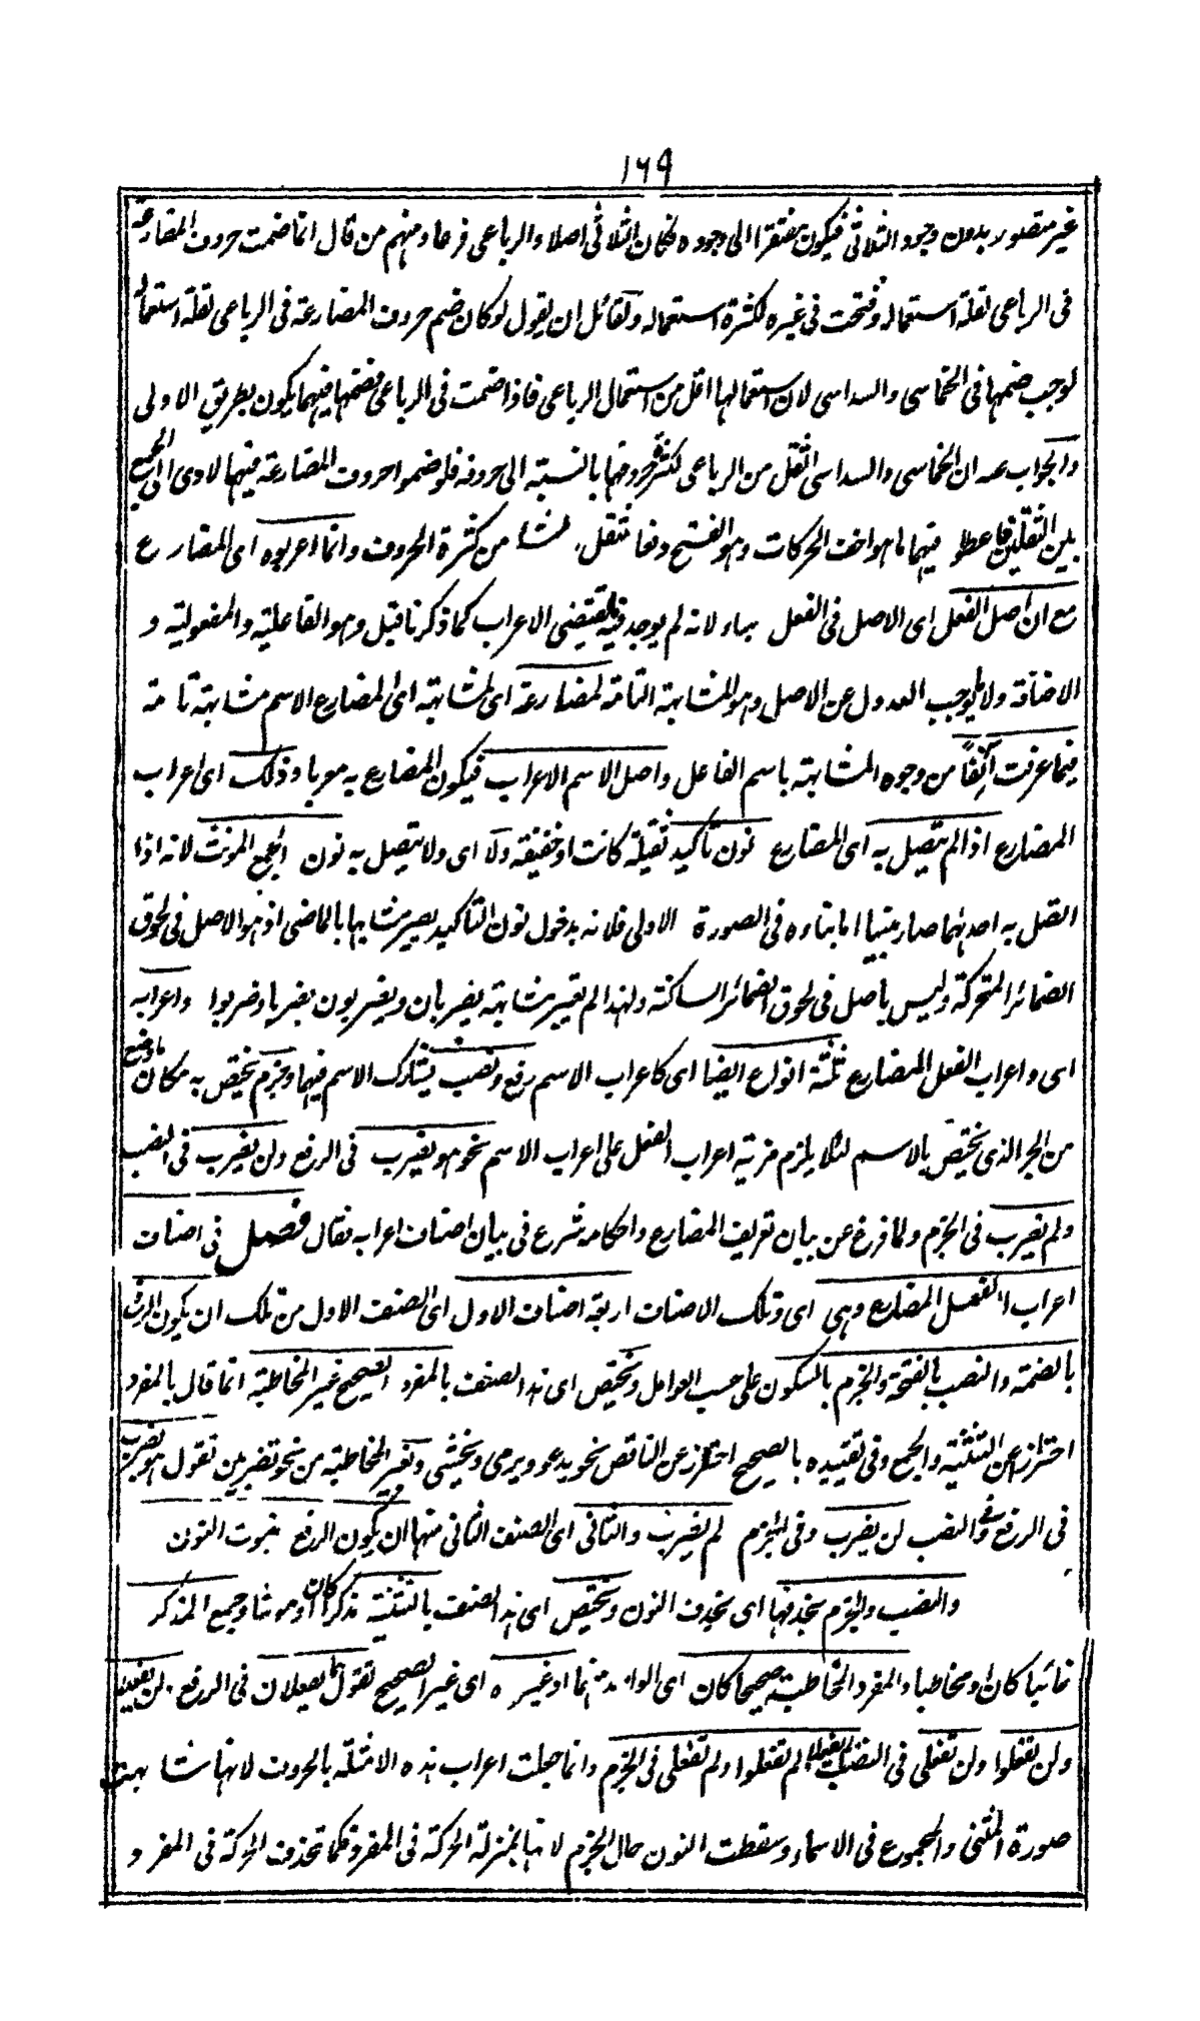 ١٦٩
غير متصور بدون وجود الثلاثي فيكون مفتقرا الى وجوده فكان الثلاثي اصلا والرباعي فرعا ومنهم من قال انما ضمت حروف المضارعة
فى الرباعى لقلة استعماله وفتحت فى غيره لكثرة استعماله ولقائل ان يقول لو كان ضم حروف المضارعة فى الرباعى لقلة استعماله
لوجب ضمها فى الخماسى والسداسى لان استعمالها اقل من استعمال الرباعى فاذا ضمت فى الرباعى فضمها فيهما يكون بطريق الاولى
والجواب عنه ان الخماسى والسداسى اثقل من الرباعى لكثرة حروفها بالنسبة الى حروفه فلو ضموا حروف المضارعة فيهما لادى الى الجمع
بين الثقلين فاعطوا فيهما ما هو اخف الحركات وهو الفتح دفعا لثقل نشأ من كثرة الحروف وانما اعربوه اى المضارع
مع ان اصل الفعل اى الاصل فى الفعل بناء لانه لم يوجد فيه مقتضى الاعراب كما ذكرنا قبل وهو الفاعلية والمفعولية و
الاضافة ولا يوجب العدول عن الاصل وهو المشابهة التامة لمضارعة اى لمشابهة اى المضارع الاسم مشابهة تامة
فيما عرفت آنفًا من وجوه المشابهة باسم الفاعل واصل الاسم الاعراب فيكون المضارع به معربا وذلك اى اعراب
المضارع اذا لم يتصل به اى المضارع نون تأكيد ثقيلة كانت او خفيفة ولا اى ولا يتصل به نون الجمع المونث لانه اذا
اتصل به احدهما صار مبنيا اما بناءه فى الصورة الاولى فلانه بدخول نون التاكيد يصير مشابها بالماضى اذ هو الاصل فى لحوق
الضمائر المتحركة وليس باصل فى لحوق الضمائر الساكنة ولهذا لم يعتبر مشابهة يضربان ويضربون بضربا وضربوا واعرابه
اى واعراب الفعل المضارع ثلثة انواع ايضا اى كاعراب الاسم رفع ونصب يشارك الاسم فيهما وجزم يختص به مكان ما وضع
من الجر الذى يختص بالاسم لئلا يلزم مزية اعراب الفعل على اعراب الاسم نحو هو يضرب فى الرفع ولن يضرب فى النصب
ولم يضرب فى الجزم ولما فرغ عن بيان تعريف المضارع واحكامه شرع فى بيان اصناف اعرابه فقال فصل فى اصناف
اعراب الفعل المضارع وهى اى وتلك الاصناف اربعة اصناف الاول اى الصنف الاول من تلك ان يكون الرفع
بالضمة والنصب بالفتحة والجزم بالسكون على حسب العوامل ويختص اى هذا الصنف بالمفرد الصحيح غير المخاطبة انما قال بالمفرد
احترازا عن التثنية والجمع وفى تقييده بالصحيح احتراز عن الناقص نحو يدعو ويرمى ويخشى وبغير المخاطبة من نحو تضربين تقول هو يضرب
فى الرفع وفى النصب لن يضرب وفى الجزم لم يضرب والثانى اى الصنف الثانى منها ان يكون الرفع بثبوت النون
والنصب والجزم بحذفها اى بحذف النون ويختص اى هذا الصنف بالتثنية مذكرا كان او مونثا وجمع المذكر
غائبا كان او مخاطبا والمفرد المخاطبة صحيحا كان اى الواحد منها او غيره اى غير الصحيح تقول هما يفعلان فى الرفع لن يفعلا
ولن تفعلوا ولن تفعلى فى النصب لم يفعلا لم تفعلوا ولم تفعلى فى الجزم وانما جعلت اعراب هذه الامثلة بالحروف لانها شابهت
صورة المثنى والمجموع فى الاسماء وسقطت النون حال الجزم لانها بمنزلة الحركة فى المفرد فكما تحذف الحركة فى المفرد